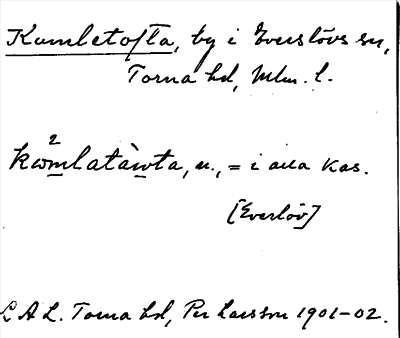 Kumletofta, by i Everslövs sn,
Torna hd, Mlm. l.
kωm̲latàω̲ta, n., = i alla kas.
2
[Everlöv]
L A L. Torna hd, Per Larsson 1901-02.